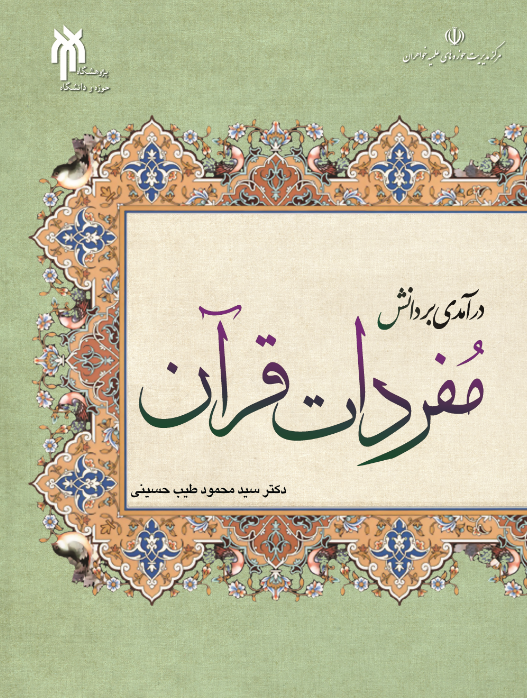 مرکز مدیریت حوزه‌های علمیه خواهران
پژوهشگاه
حوزه و دانشگاه
درآمدی بر دانش
مُفردات قرآن
دکتر سید محمود طیب حسینی